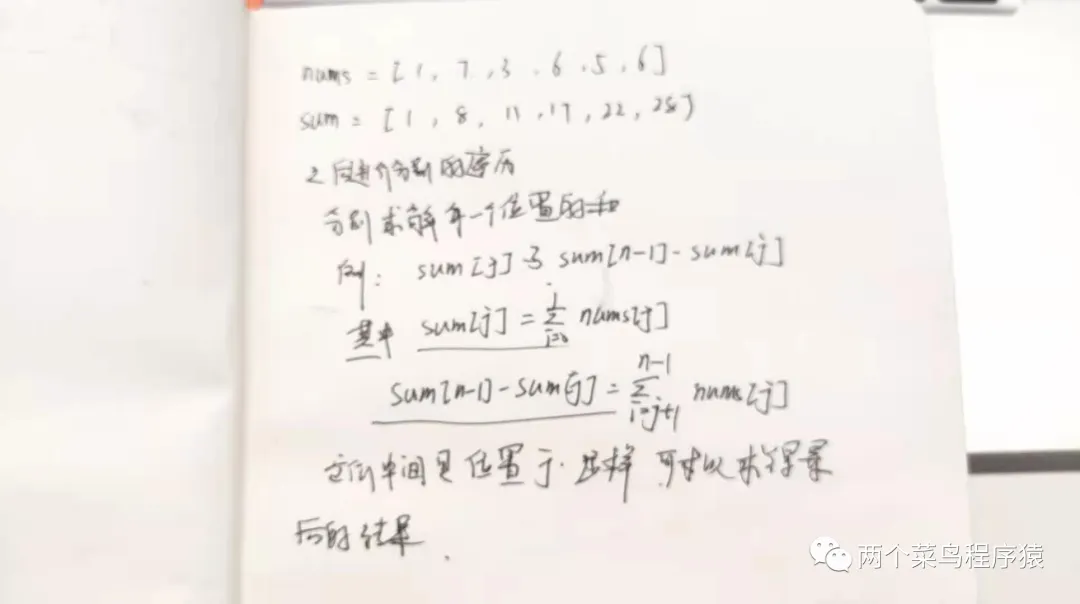 nums = [1, 7, 3, 6, 5, 6]
sum = [1, 8, 11, 17, 22, 28]
2 分别的遍历
分别求解每一个位置的和
例: sum[j] 与 sum[n-1] - sum[j]
其中 sum[j] = ∑_{i=0}^{j} nums[j]
sum[n-1] - sum[j] = ∑_{i=j+1}^{n-1} nums[j]
中间是位置 可以求得最
后的结果.
两个菜鸟程序猿